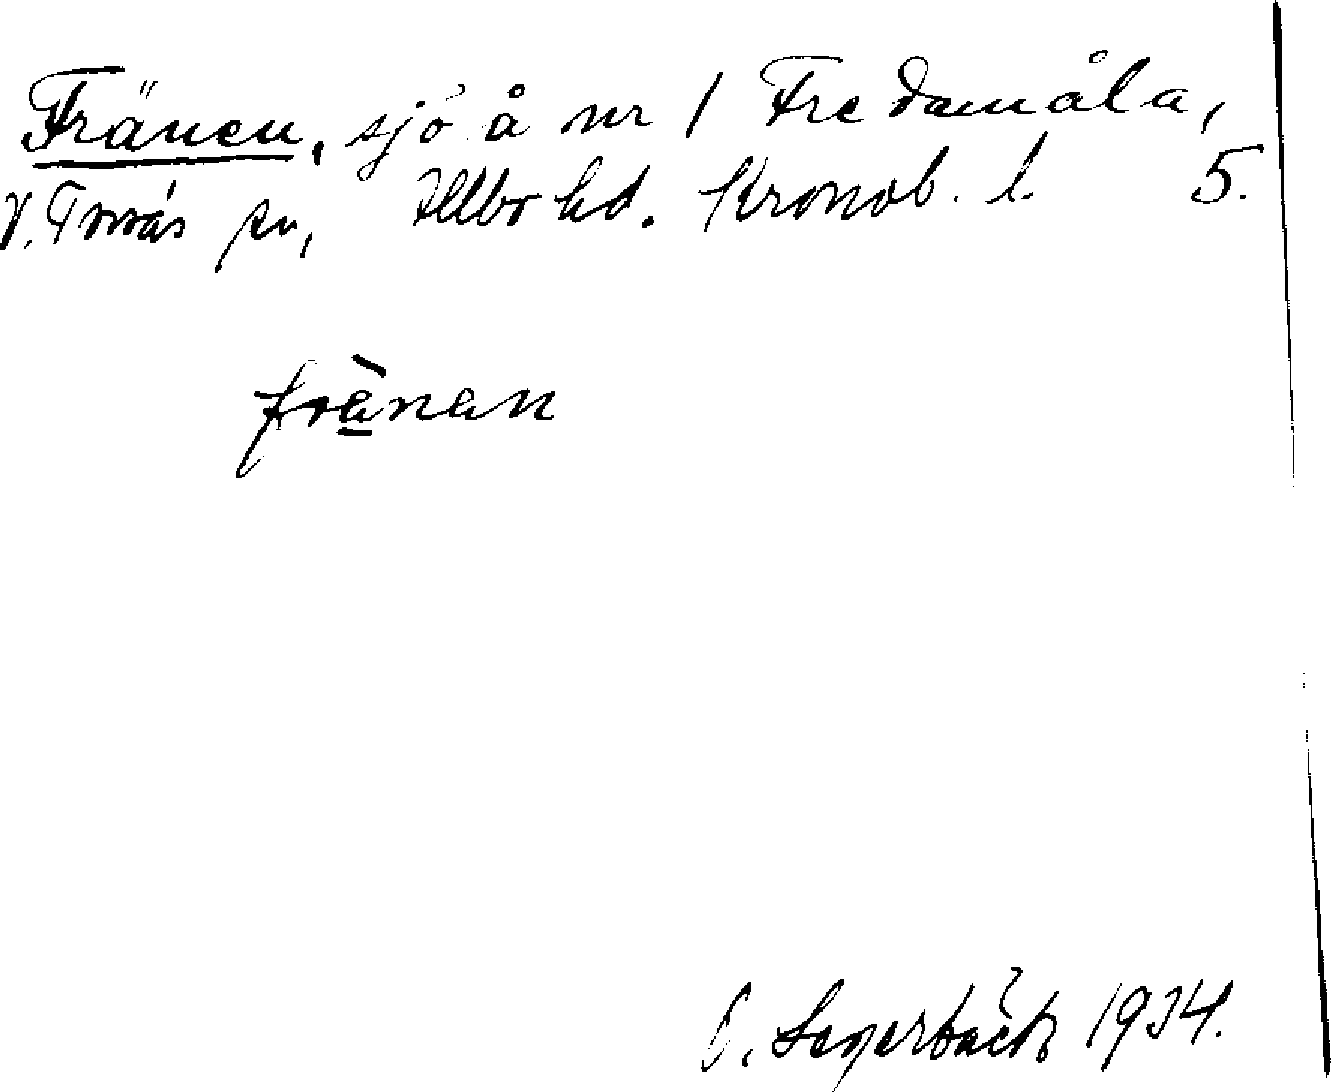 Fränen, sjö å nr 1 Fredamåla,
V. Torsås sn, Allbo hd. Kronob. l. 5.
frànan
O. Lagerbäck 1934.